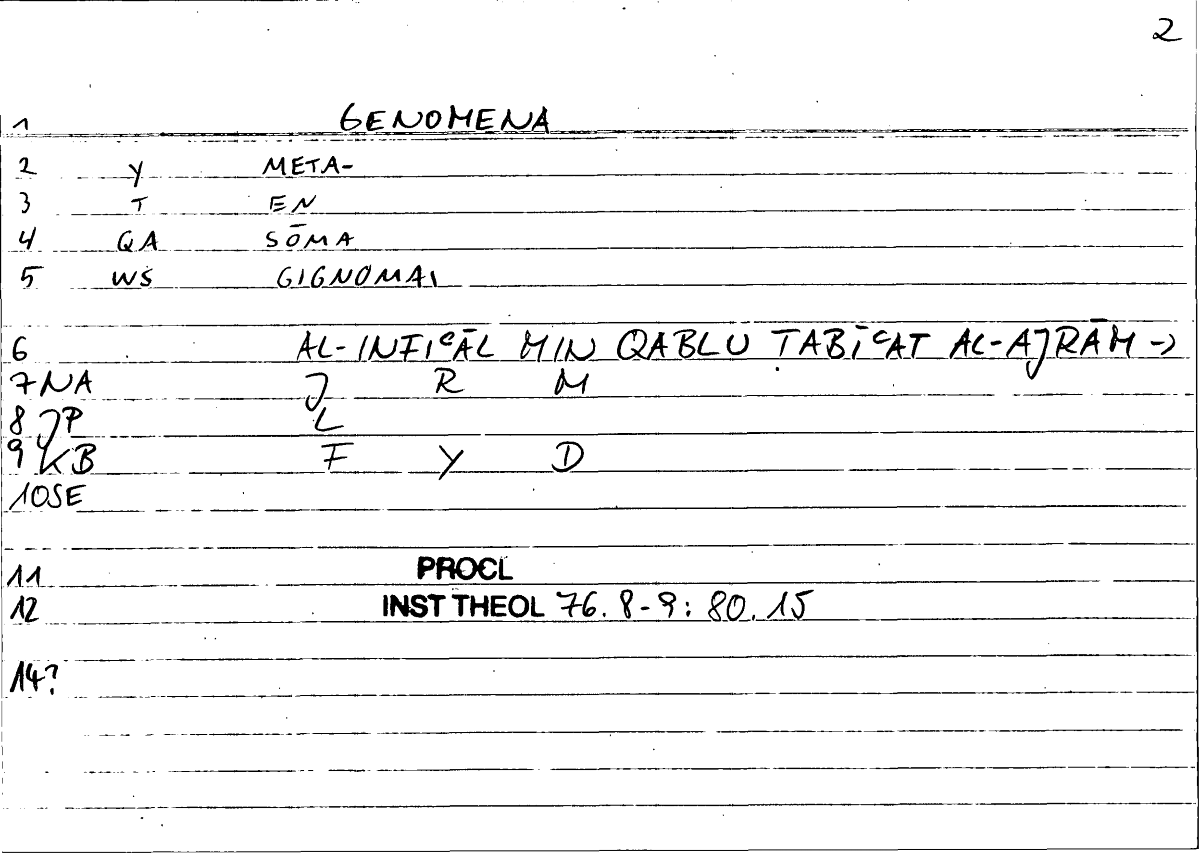 2
1 GENOMENA
2 Y META-
3 T EN
4 QA SŌMA
5 WS GIGNOMAI
6 AL-INFIʿĀL MIN QABLU ṬABĪʿAT AL-AJRĀM →
7 NA J R M
8 JP L
9 KB F Y D
10 SE
11 PROCL
12 INST THEOL 76. 8-9: 80. 15
14?